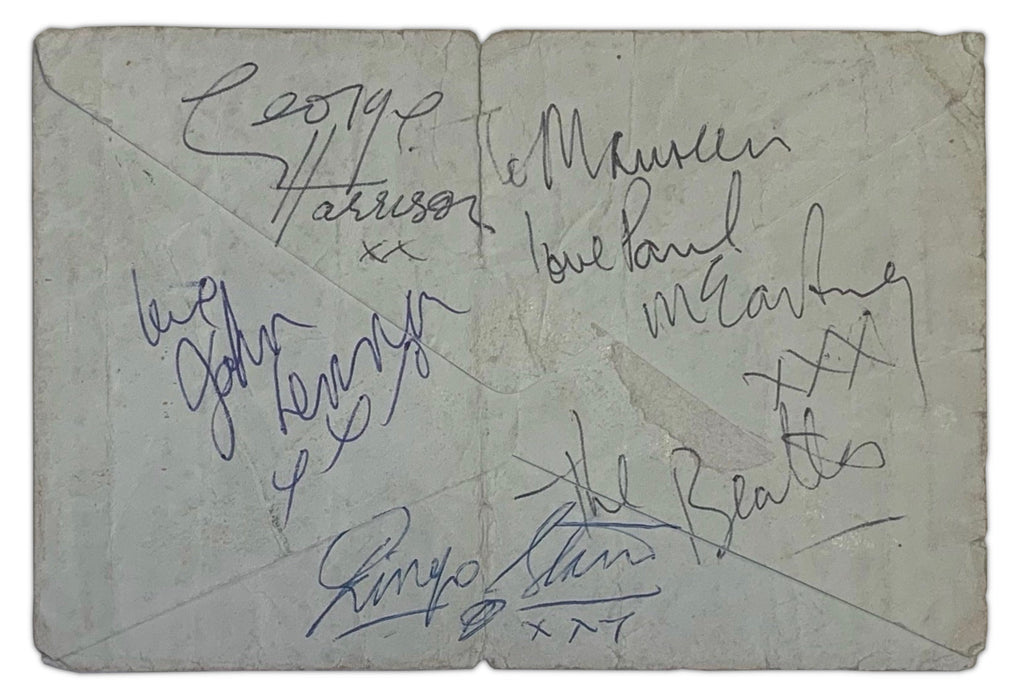 George
Harrison
xx
To Maureen
love Paul
McCartney
xxx
love
John
Lennon
xx
The Beatles
Ringo Starr
xxx